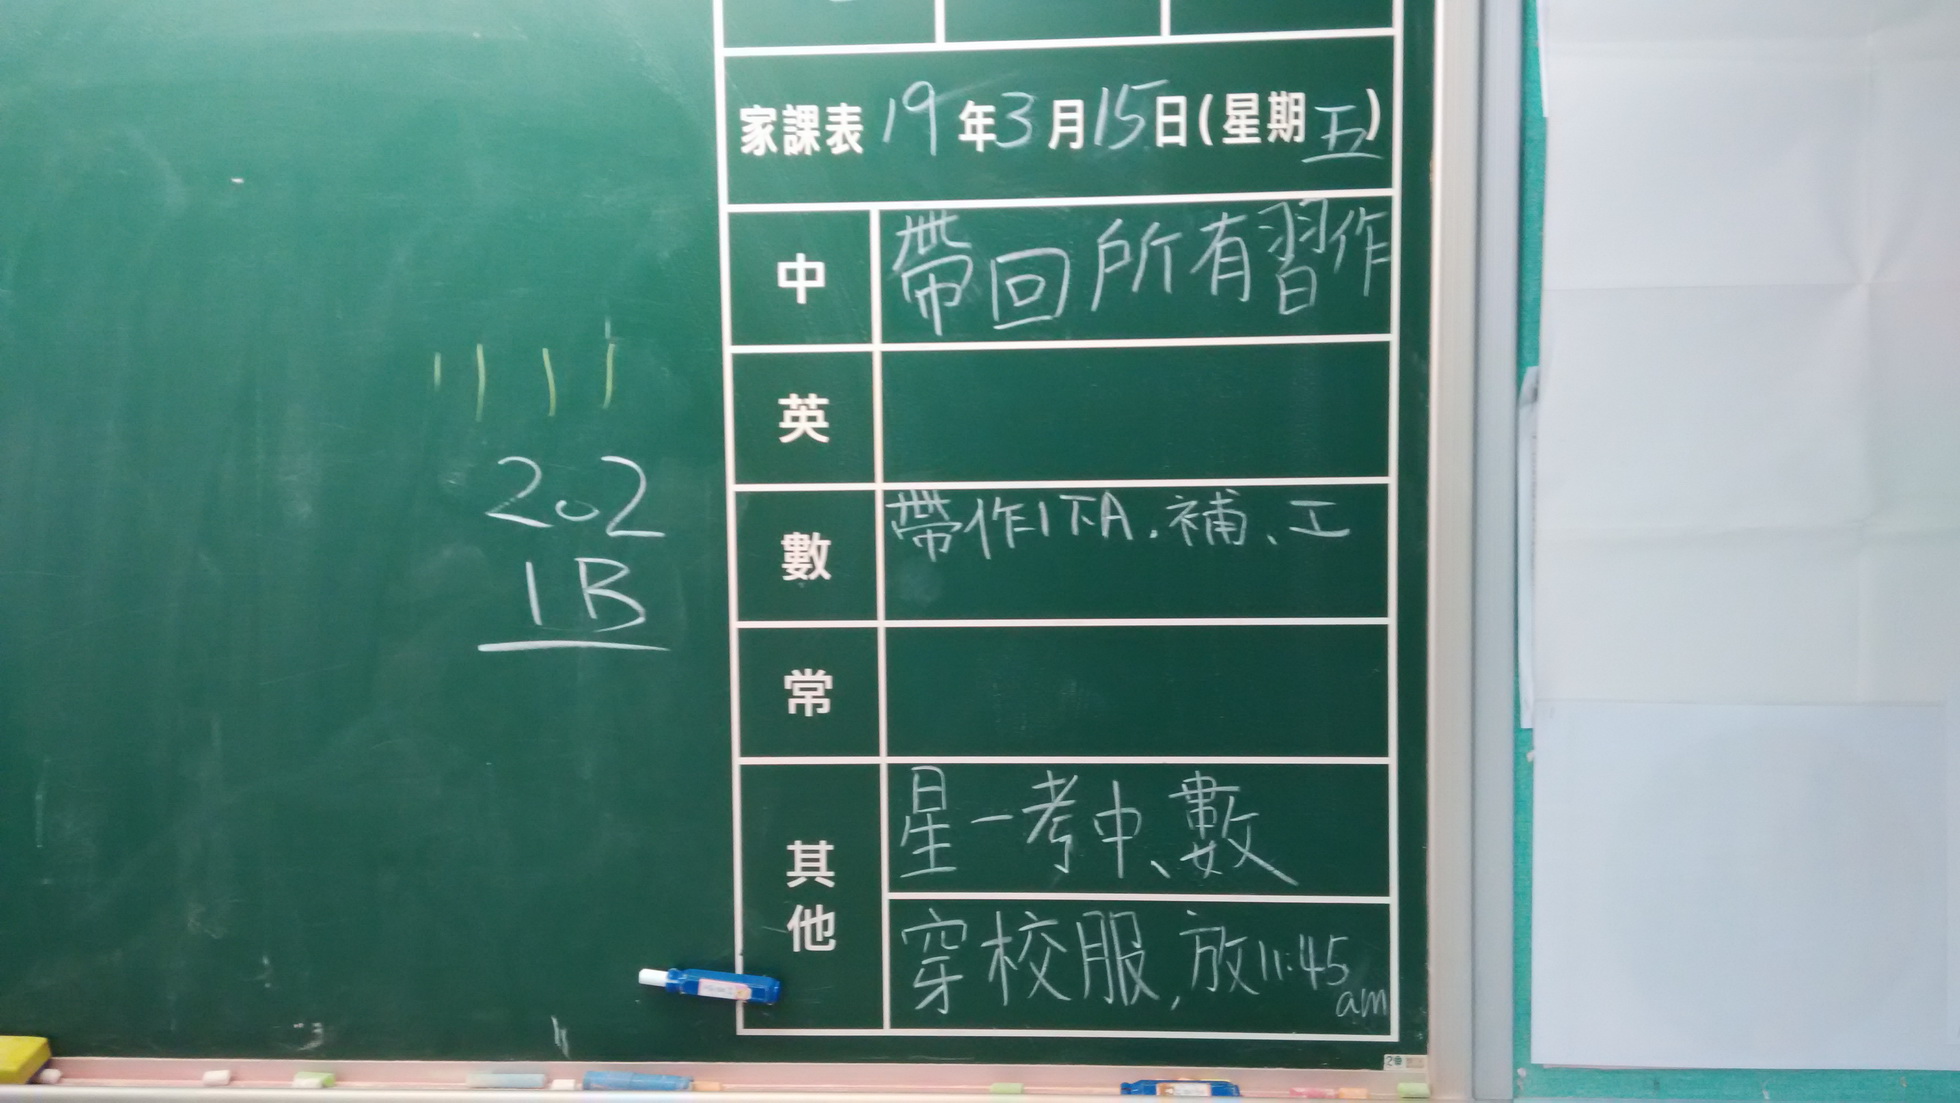 家課表 19年3月15日(星期五)
中 帶回所有習作
英
數 帶作1下A、補、工
常
其他 星一考中、數
穿校服,放11:45am
202
1B